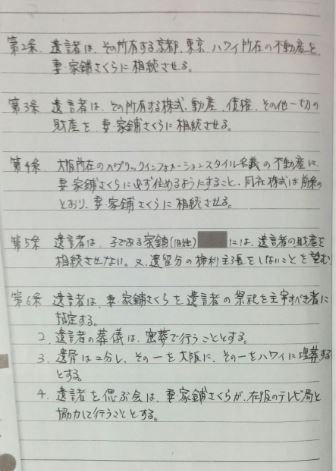 第2条 遺言者は、その所有する京都、東京、ハワイ所在の不動産を、
妻 家鋪さくらに相続させる。
第3条 遺言者は、その所有する株式、動産、債権、その他一切の
財産を、妻 家鋪さくらに相続させる。
第4条 大阪所在のパブリックインフォメーションスタイル名義の不動産に、
妻 家鋪さくらに必ず住めるようにすること、同社株式は前条の
とおり、妻 家鋪さくらに相続させる。
第5条 遺言者は、子である家鋪(旧姓) には、遺言者の財産を
相続させない。又、遺留分の権利主張をしないことを望む
第6条 遺言者は、妻 家鋪さくらを遺言者の祭祀を主宰すべき者に
指定する。
2. 遺言者の葬儀は、密葬で行うこととする。
3. 遺骨は二分し、その一を大阪に、その一をハワイに埋葬する
とする。
4. 遺言者を偲ぶ会は、妻 家鋪さくらが、在阪のテレビ局と
協力して行うこととする。